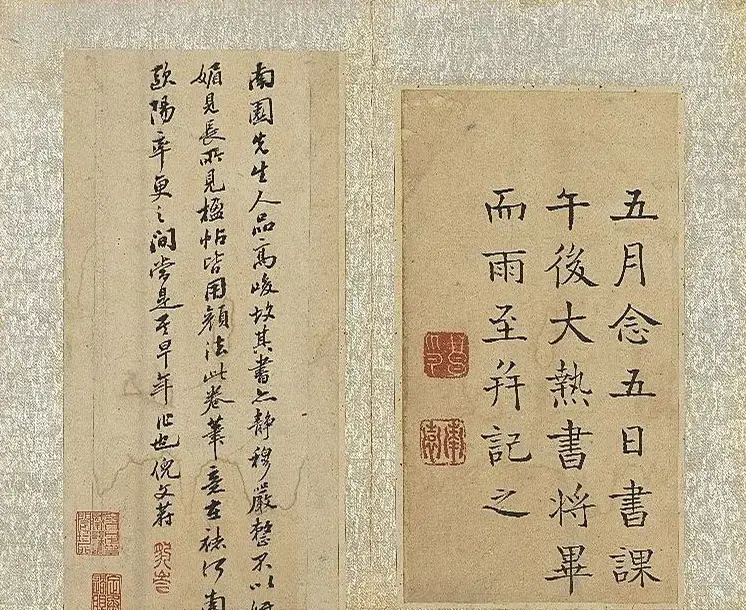 五月念五日書課
午後大熱書将畢
而雨至并記之
南園
南園先生人品高峻故其書亦静穆嚴整不以
媚見長所見楹帖皆用顔法此卷筆意在褚河南
歐陽率更之間當是其早年作也倪文蔚